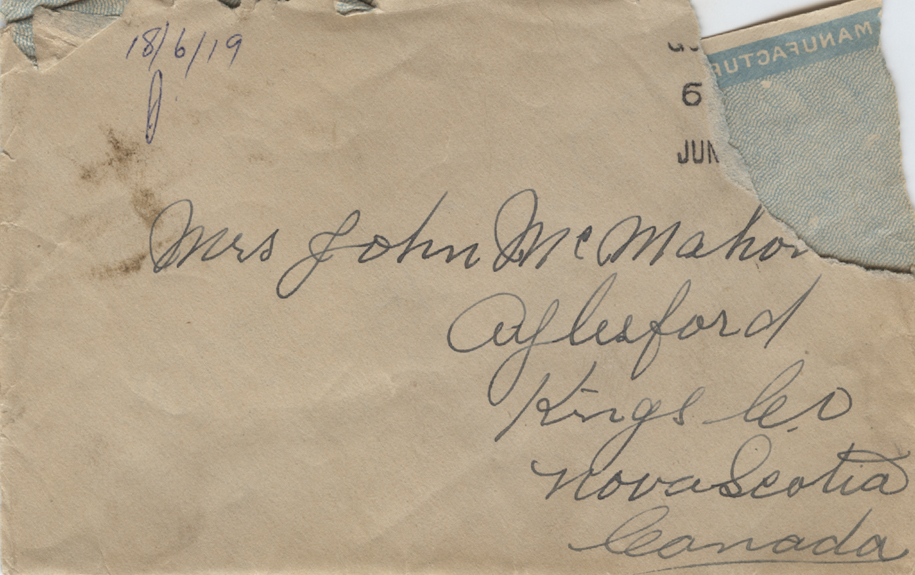 18/6/19
6
JUN
MANUFACTUR
Mrs John McMahon
Aylesford
Kings Co
Nova Scotia
Canada